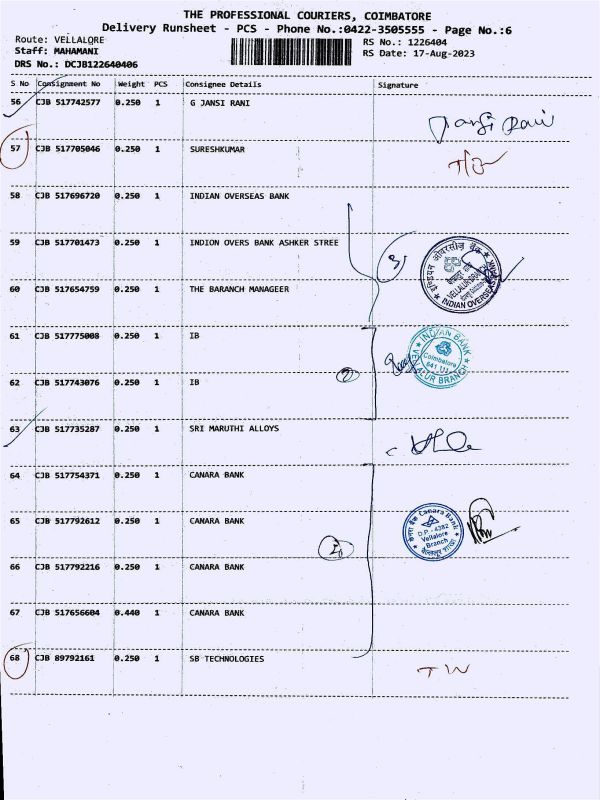 THE PROFESSIONAL COURIERS, COIMBATORE
Delivery Runsheet - PCS - Phone No.:0422-3505555 - Page No.:6
Route: VELLALORE
Staff: MAHAMANI
DRS No.: DCJB122640406
RS No.: 1226404
RS Date: 17-Aug-2023
S No Consignment No Weight PCS Consignee Details Signature
56 CJB 517742577 0.250 1 G JANSI RANI
57 CJB 517705046 0.250 1 SURESHKUMAR
58 CJB 517696720 0.250 1 INDIAN OVERSEAS BANK
59 CJB 517701473 0.250 1 INDION OVERS BANK ASHKER STREE
60 CJB 517654759 0.250 1 THE BARANCH MANAGEER
इण्डियन ओवरसीज़ बैंक
INDIAN OVERSEAS
61 CJB 517775008 0.250 1 IB
INDIAN BANK
Coimbatore
VELLALUR BRANCH
62 CJB 517743076 0.250 1 IB
63 CJB 517735287 0.250 1 SRI MARUTHI ALLOYS
64 CJB 517754371 0.250 1 CANARA BANK
65 CJB 517792612 0.250 1 CANARA BANK
केनरा बैंक Canara Bank
D.P.- 4382
Vellalore
Branch
66 CJB 517792216 0.250 1 CANARA BANK
67 CJB 517656604 0.440 1 CANARA BANK
68 CJB 89792161 0.250 1 SB TECHNOLOGIES